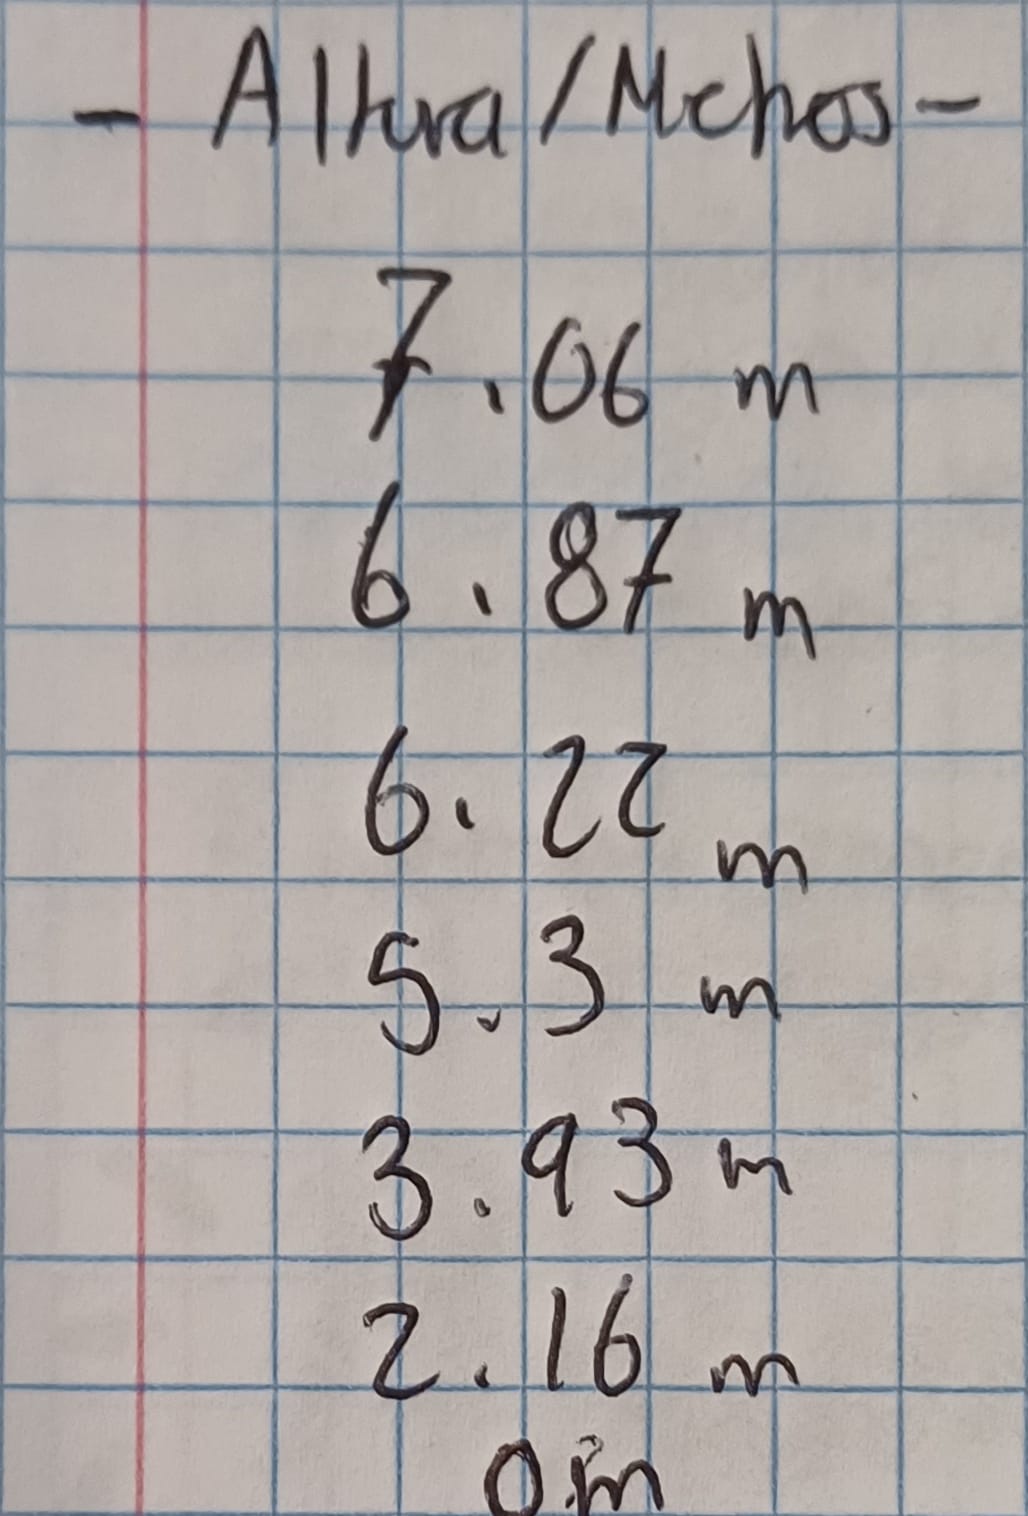 - Altura/Metros -
7.06 m
6.87 m
6.22 m
5.3 m
3.93 m
2.16 m
0 m